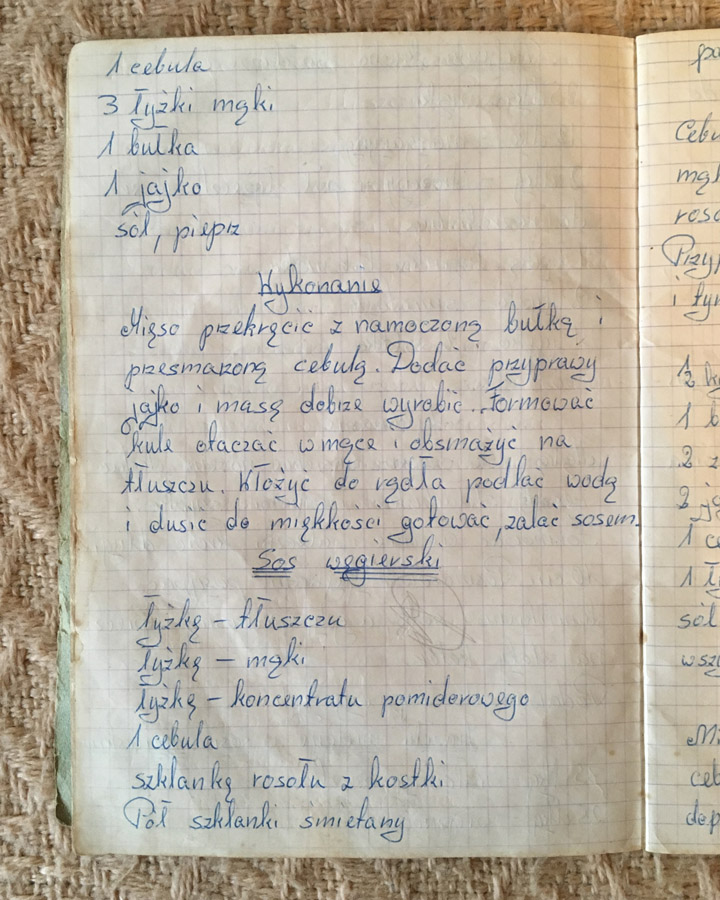 1 cebula
3 łyżki mąki
1 bułka
1 jajko
sól, pieprz
Wykonanie
Mięso przekręcić z namoczoną bułką i
przesmażoną cebulą. Dodać przyprawy
jajko i masę dobrze wyrobić. Formować
kule otaczać w mące i obsmażyć na
tłuszczu. Włożyć do rądla podlać wodą
i dusić do miękkości gotować, zalać sosem.
Sos węgierski
łyżkę – tłuszczu
łyżkę – mąki
łyżkę – koncentratu pomidorowego
1 cebula
szklankę rosołu z kostki
Pół szklanki śmietany
Cebu
mąk
roso
Przyp
i tym
1/2 kg
1 b
2 z
2 ja
1 ce
1 ły
sól
wszy
Mi
ceb
dop